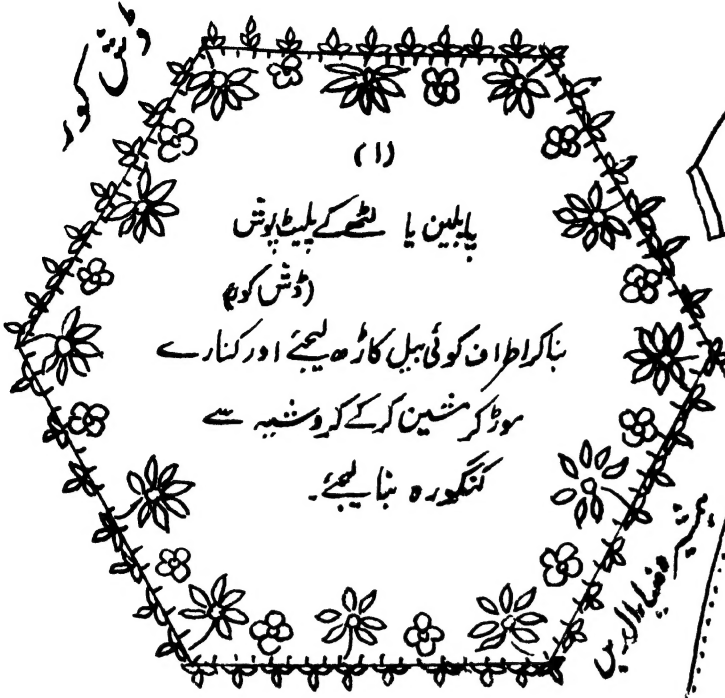 ڈش کور
(۱)
پاپلین یا لٹھے کے پلیٹ پوش
(ڈش کور)
بنا کر اطراف کوئی بیل کاڑھ لیجئے اور کنارے
موڑ کر مشین کرکے کروشیہ سے
کنگورہ بنا لیجئے۔